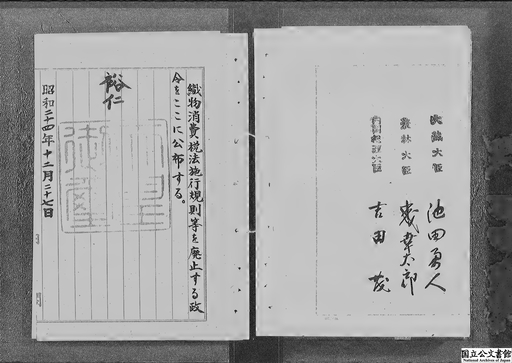 大藏大臣 池田勇人
農林大臣 森幸太郎
吉田茂
織物消費税法施行規則等を廃止する政
令をここに公布する。
裕仁
昭和二十四年十二月二十七日
国立公文書館
National Archives of Japan